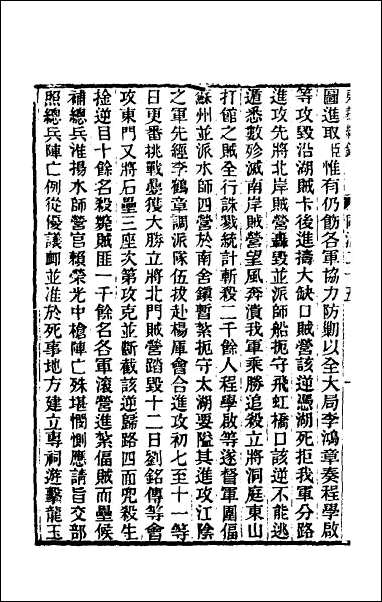 圖進取臣惟有仍飭各軍協力防剿以全大局李鴻章奏程學啟
等攻毀沿湖賊卡後進擣大缺口賊營該逆憑湖死拒我軍分路
進攻先將北岸賊營轟毀並派師船扼守飛虹橋口該逆不能逃
遁悉數殄滅南岸賊營望風奔潰我軍乘勝追殺立將洞庭東山
打館之賊全行誅戮統計斬殺二千餘人程學啟等遂督軍圍偪
蘇州並派水師四營於南舍鎮暫紮扼守太湖要隘其進攻江陰
之軍先經李鶴章調派隊伍拔赴楊厙會合進攻初七至十一等
日更番挑戰疊獲大勝立將北門賊營踏毀十二日劉銘傳等會
攻東門又將石壘三座次第攻克並斷截該逆歸路四面兜殺生
擒逆目十餘名殺斃賊匪一千餘名各軍滾營進紮偪賊而壘候
補總兵淮揚水師營官賴榮光中槍陣亡殊堪憫惻應請旨交部
照總兵陣亡例從優議卹並准於死事地方建立專祠遊擊龍玉